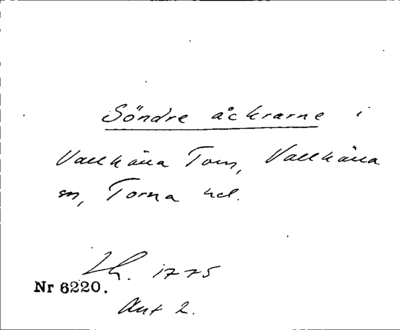 Söndre åckrarne i
Vallkärra Torn, Vallkärra
sn, Torna hd.
Lh. 1775
Nr 6220.
Akt 2.